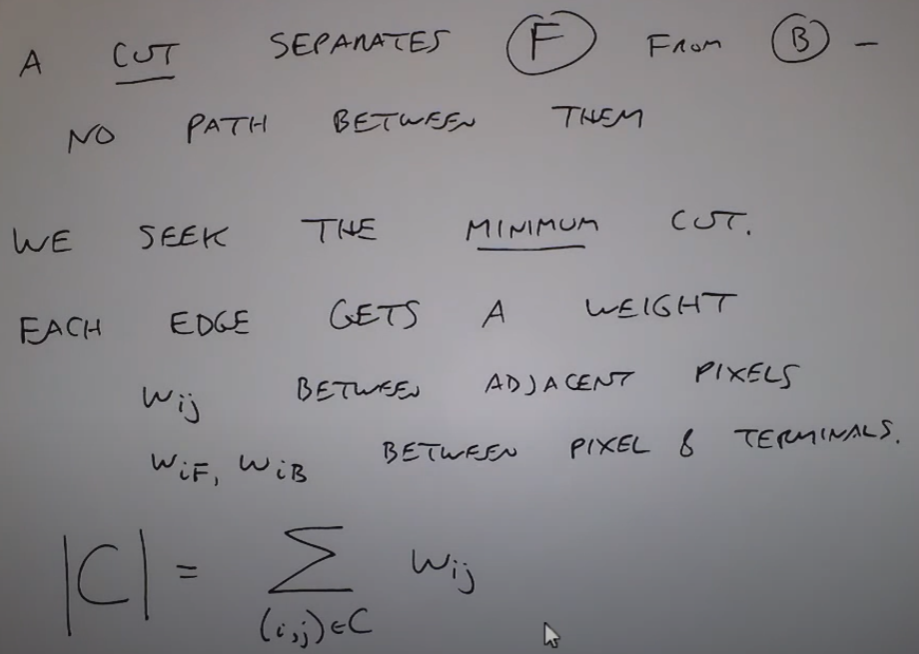 A CUT SEPARATES F FROM B –
NO PATH BETWEEN THEM
WE SEEK THE MINIMUM CUT.
EACH EDGE GETS A WEIGHT
wij BETWEEN ADJACENT PIXELS
wiF, wiB BETWEEN PIXEL & TERMINALS.
|C| = Σ wij
(i,j)∈C